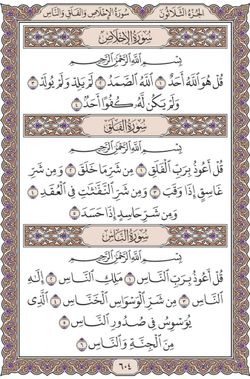 الجزء الثلاثون
سورة الإخلاص والفلق والناس
سورة الإخلاص
بسم الله الرحمن الرحيم
قُلْ هُوَ ٱللَّهُ أَحَدٌ ١ ٱللَّهُ ٱلصَّمَدُ ٢ لَمْ يَلِدْ وَلَمْ يُولَدْ ٣
وَلَمْ يَكُن لَّهُۥ كُفُوًا أَحَدٌۢ ٤
سورة الفلق
بسم الله الرحمن الرحيم
قُلْ أَعُوذُ بِرَبِّ ٱلْفَلَقِ ١ مِن شَرِّ مَا خَلَقَ ٢ وَمِن شَرِّ
غَاسِقٍ إِذَا وَقَبَ ٣ وَمِن شَرِّ ٱلنَّفَّـٰثَـٰتِ فِى ٱلْعُقَدِ ٤
وَمِن شَرِّ حَاسِدٍ إِذَا حَسَدَ ٥
سورة الناس
بسم الله الرحمن الرحيم
قُلْ أَعُوذُ بِرَبِّ ٱلنَّاسِ ١ مَلِكِ ٱلنَّاسِ ٢ إِلَـٰهِ
ٱلنَّاسِ ٣ مِن شَرِّ ٱلْوَسْوَاسِ ٱلْخَنَّاسِ ٤ ٱلَّذِى
يُوَسْوِسُ فِى صُدُورِ ٱلنَّاسِ ٥
مِنَ ٱلْجِنَّةِ وَٱلنَّاسِ ٦
٦٠٤